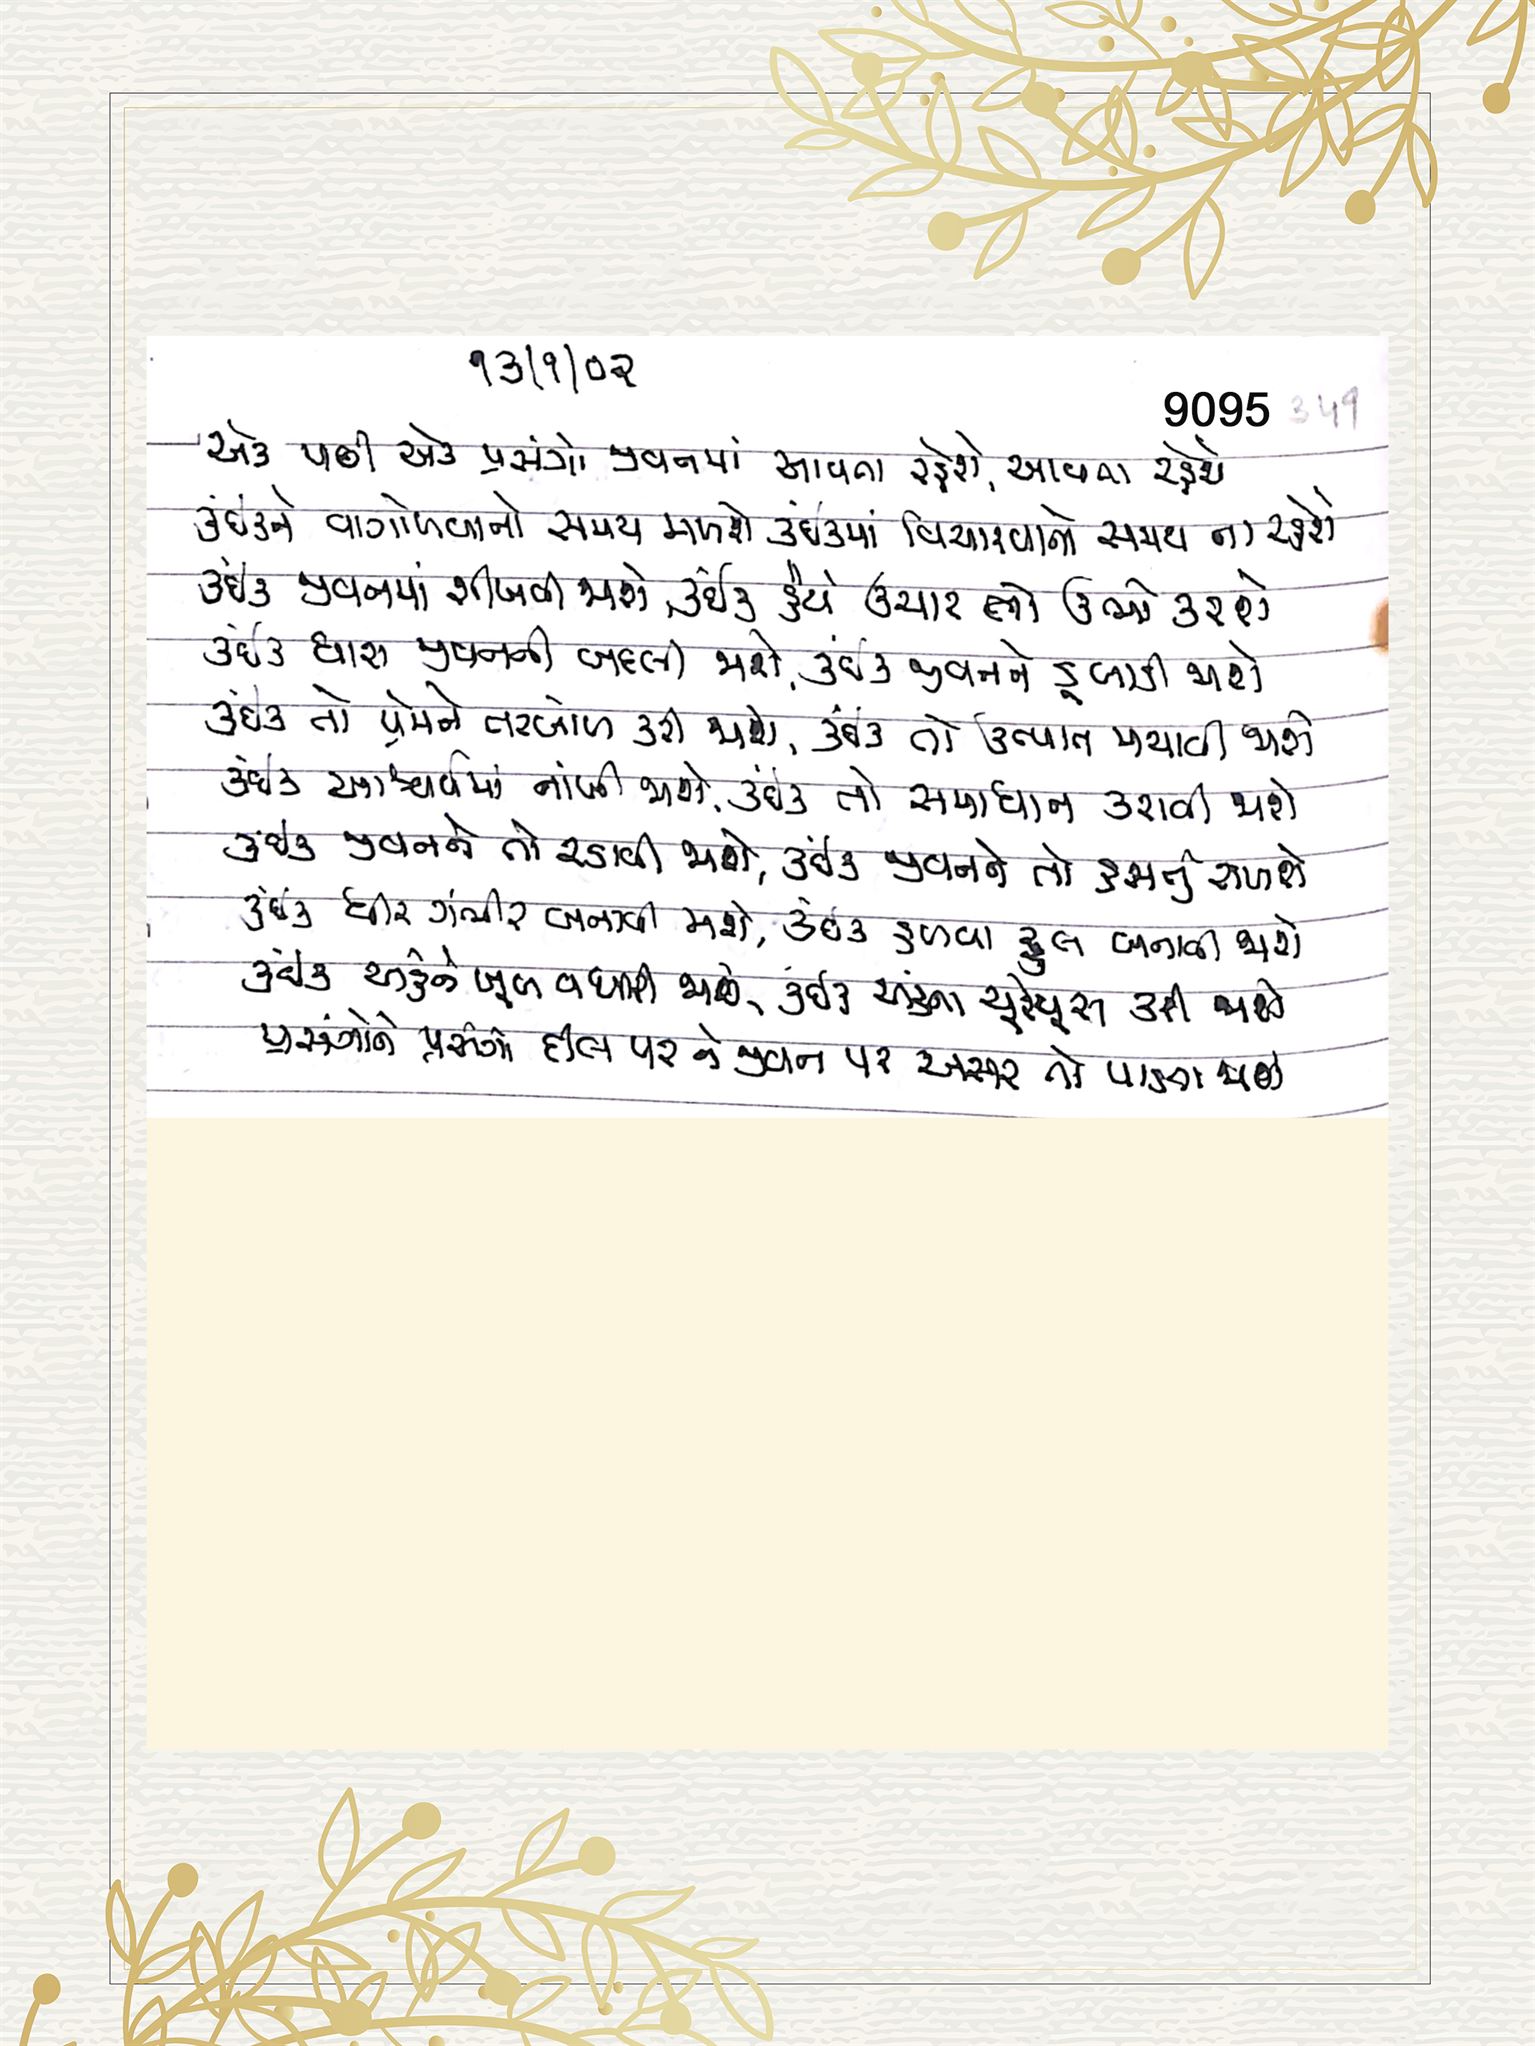 ૧૩/૧/૦૨
9095 ૩૫૧
એક પછી એક પ્રસંગો જીવનમાં આવતા રહેશે, આવતા રહેશે
કંઈકને વાગોળવાનો સમય મળશે કંઈકમાં વિચારવાનો સમય ના રહેશે
કંઈક જીવનમાં શીખવી જાશે, કંઈક હૈયે ઉચાર તો ઉભો કરશે
કંઈક ધારા જીવનની બદલી જાશે, કંઈક જીવનને ડૂબાડી જાશે
કંઈક તો પ્રેમને તરબોળ કરી જાશે, કંઈક તો ઉત્પાત મચાવી જાશે
કંઈક આશ્ચર્યમાં નાંખી જાશે, કંઈક તો સમાધાન કરાવી જાશે
કંઈક જીવનને તો રડાવી જાશે, કંઈક જીવનને તો હસતું રાખશે
કંઈક ધીર ગંભીર બનાવી જાશે, કંઈક હળવા ફુલ બનાવી જાશે
કંઈક અહંને ખૂબ વધારી જાશે, કંઈક અહંના ચૂરેચૂરા કરી જાશે
પ્રસંગોને પ્રસંગો દીલ પર ને જીવન પર અસર તો પાડતા જાશે